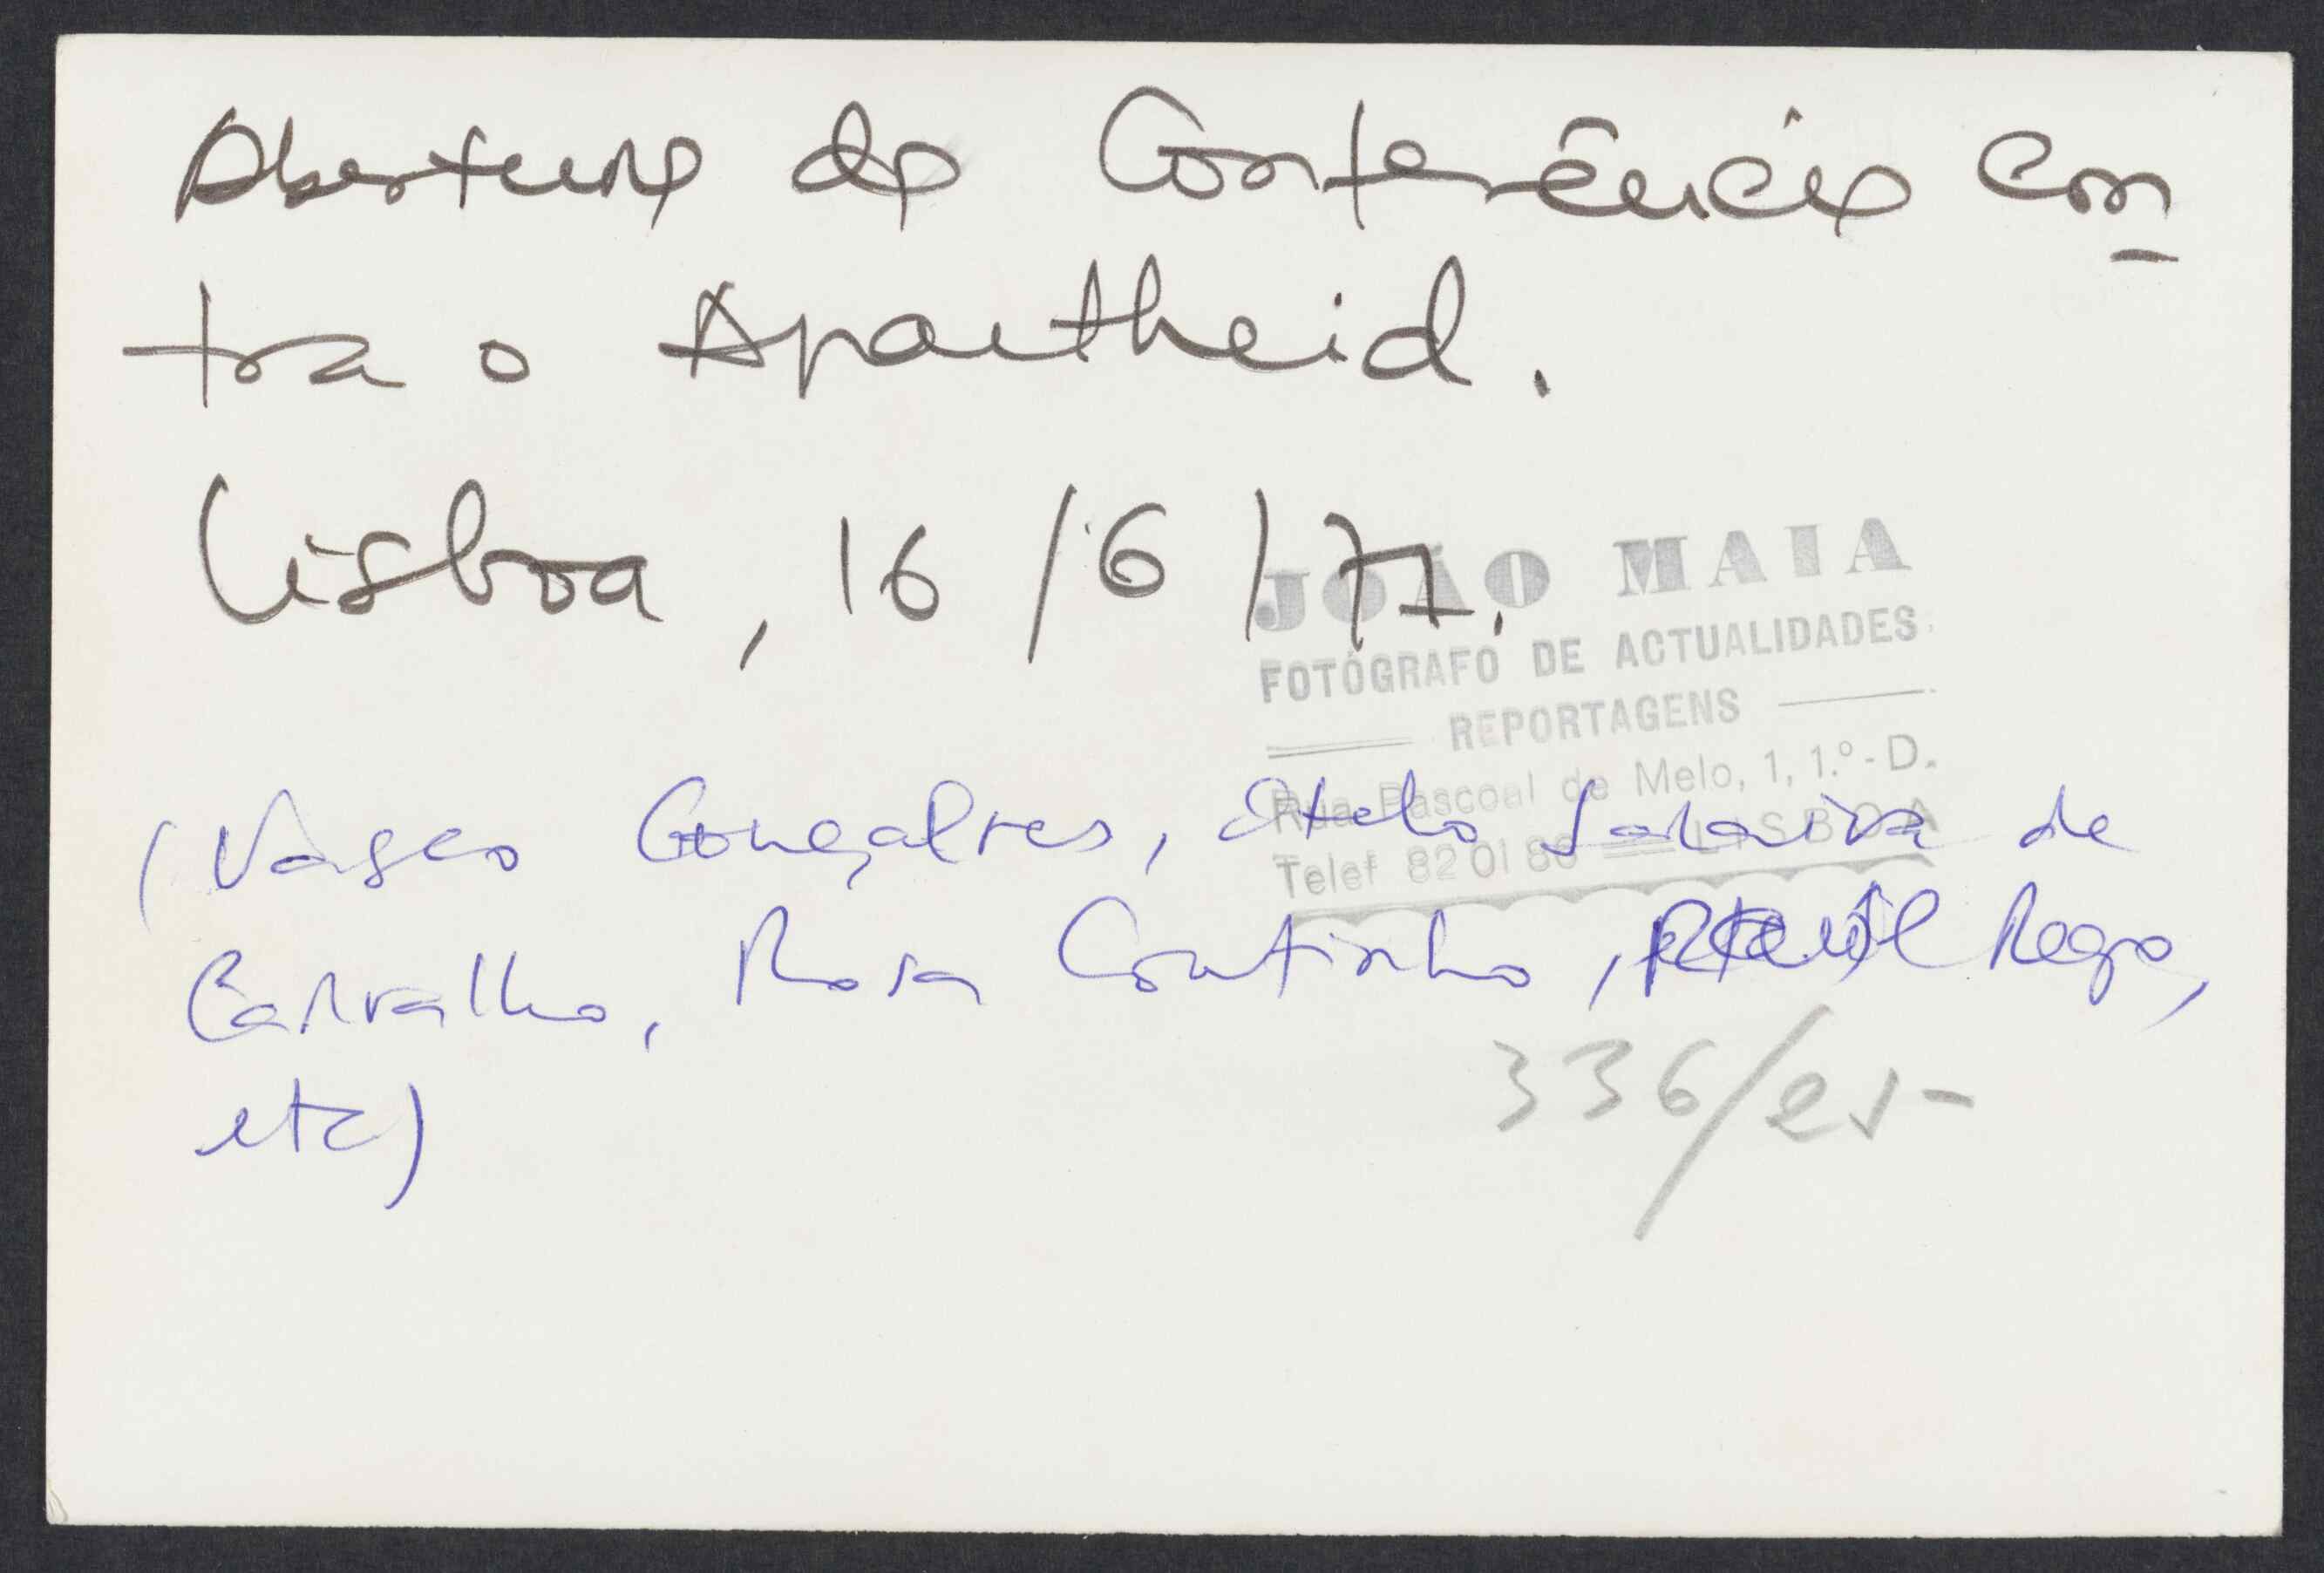 Abertura da Conferência con
tra o Apartheid.
Lisboa, 16/6/77.
JOÃO MAIA
FOTÓGRAFO DE ACTUALIDADES
REPORTAGENS
Rua Pascoal de Melo, 1, 1.º-D.
Telef 82 01 86 LISBOA
(Vasco Gonçalves, Otelo Saraiva de
Carvalho, Rosa Coutinho, Raul Rego,
etc)
336/